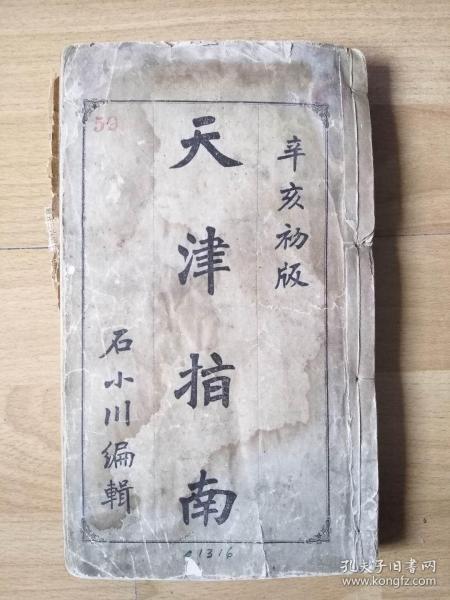 辛亥初版
天津指南
石小川編輯
59
1316
孔夫子旧书网
www.kongfz.com